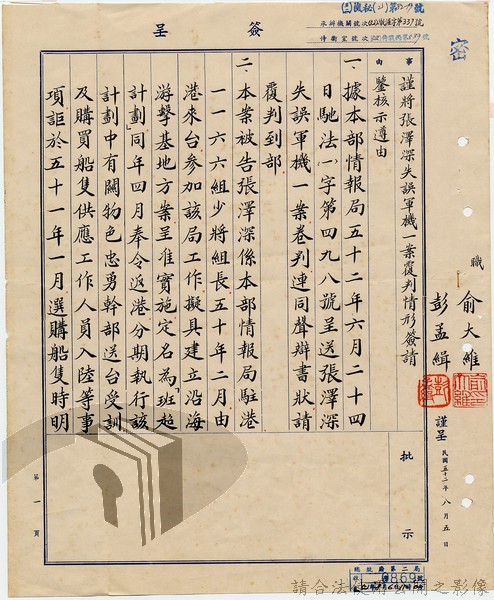 簽呈
密
事由
謹將張澤深失誤軍機一案覆判情形簽請
鑒核示遵由
一、據本部情報局五十二年六月二十四
日馳法(一)字第四九八號呈送張澤深
失誤軍機一案卷判連同聲辯書狀請
覆判到部
二、本案被告張澤深係本部情報局駐港
一一六六組少將組長五十年二月由
港來台參加該局工作擬具建立沿海
游擊基地方案呈准實施定名為「班超
計劃」同年四月奉令返港分期執行該
計劃中有關物色忠勇幹部送台受訓
及購買船隻供應工作人員入陸等事
項詎於五十一年一月選購船隻時明
職 俞大維
彭孟緝
謹呈
民國五十二年八月五日
批示
第一頁
總統府第二局
請合法使用公開之影像